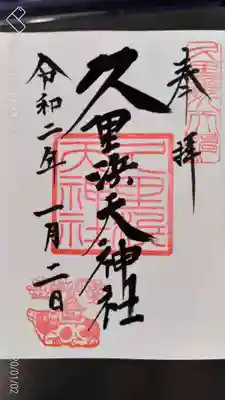 奉拝
久里浜天神社
令和二年 一月二日
久里浜
天神社
20/01/02